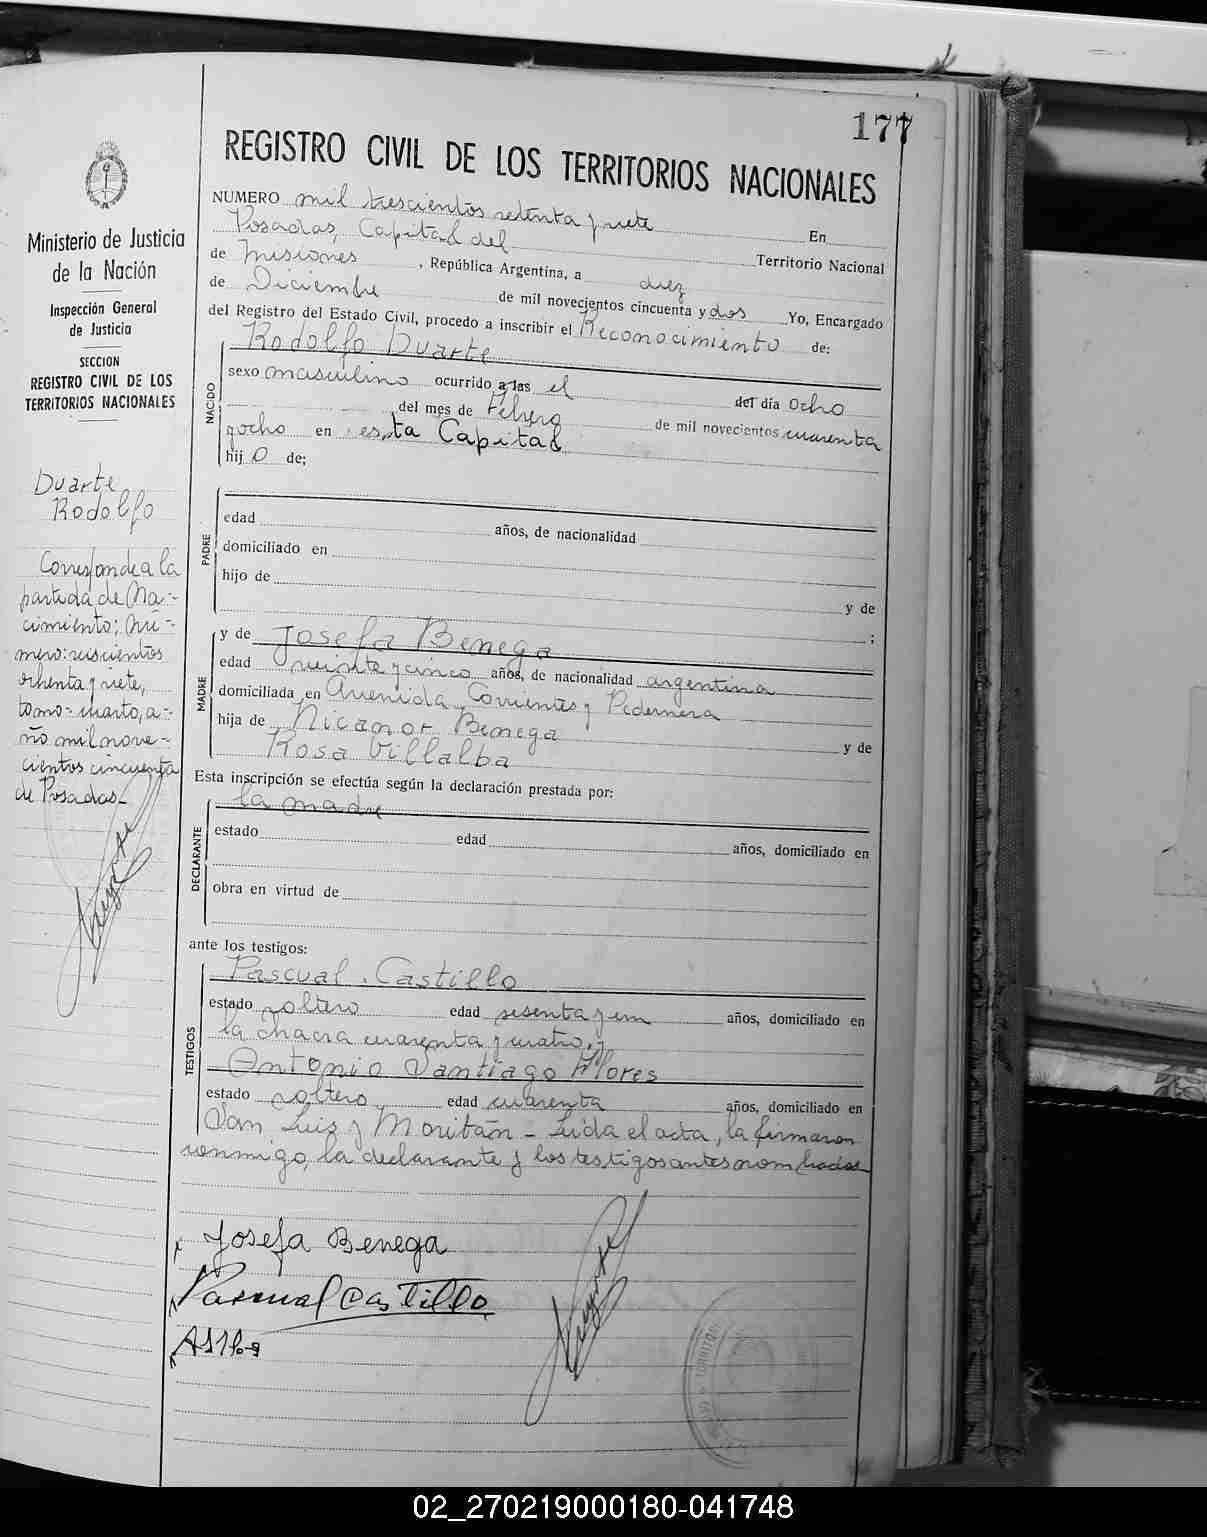 177
REGISTRO CIVIL DE LOS TERRITORIOS NACIONALES
NUMERO mil trescientos setenta y siete
Posadas, Capital del En
de Misiones, República Argentina, a diez Territorio Nacional
de Diciembre de mil novecientos cincuenta y dos Yo, Encargado
del Registro del Estado Civil, procedo a inscribir el Reconocimiento de:
Rodolfo Duarte
NACIDO
sexo masculino ocurrido a las el del día ocho
del mes de Febrero de mil novecientos cuarenta
y ocho en esta Capital
hijo de;
PADRE
edad años, de nacionalidad
domiciliado en
hijo de
y de
;
MADRE
y de Josefa Benega
edad veinte y cinco años, de nacionalidad argentina
domiciliada en Avenida Corrientes y Pedernera
hija de Nicanor Benega y de
Rosa Villalba
Esta inscripción se efectúa según la declaración prestada por:
la madre
DECLARANTE
estado edad años, domiciliado en
obra en virtud de
ante los testigos:
TESTIGOS
Pascual Castillo
estado soltero edad sesenta y un años, domiciliado en
la chacra cuarenta y cuatro, y
Antonio Santiago Flores
estado soltero edad cuarenta años, domiciliado en
San Luis y Moritán - Leída el acta, la firmaron
conmigo, la declarante y los testigos antes nombrados
Josefa Benega
Pascual Castillo
Ministerio de Justicia
de la Nación
Inspección General
de Justicia
SECCION
REGISTRO CIVIL DE LOS
TERRITORIOS NACIONALES
Duarte
Rodolfo
Corresponde a la
partida de Na-
cimiento; nú-
mero: seiscientos
ochenta y siete,
tomo cuarto, a-
ño mil nove-
cientos cincuenta
de Posadas-
02_270219000180-041748